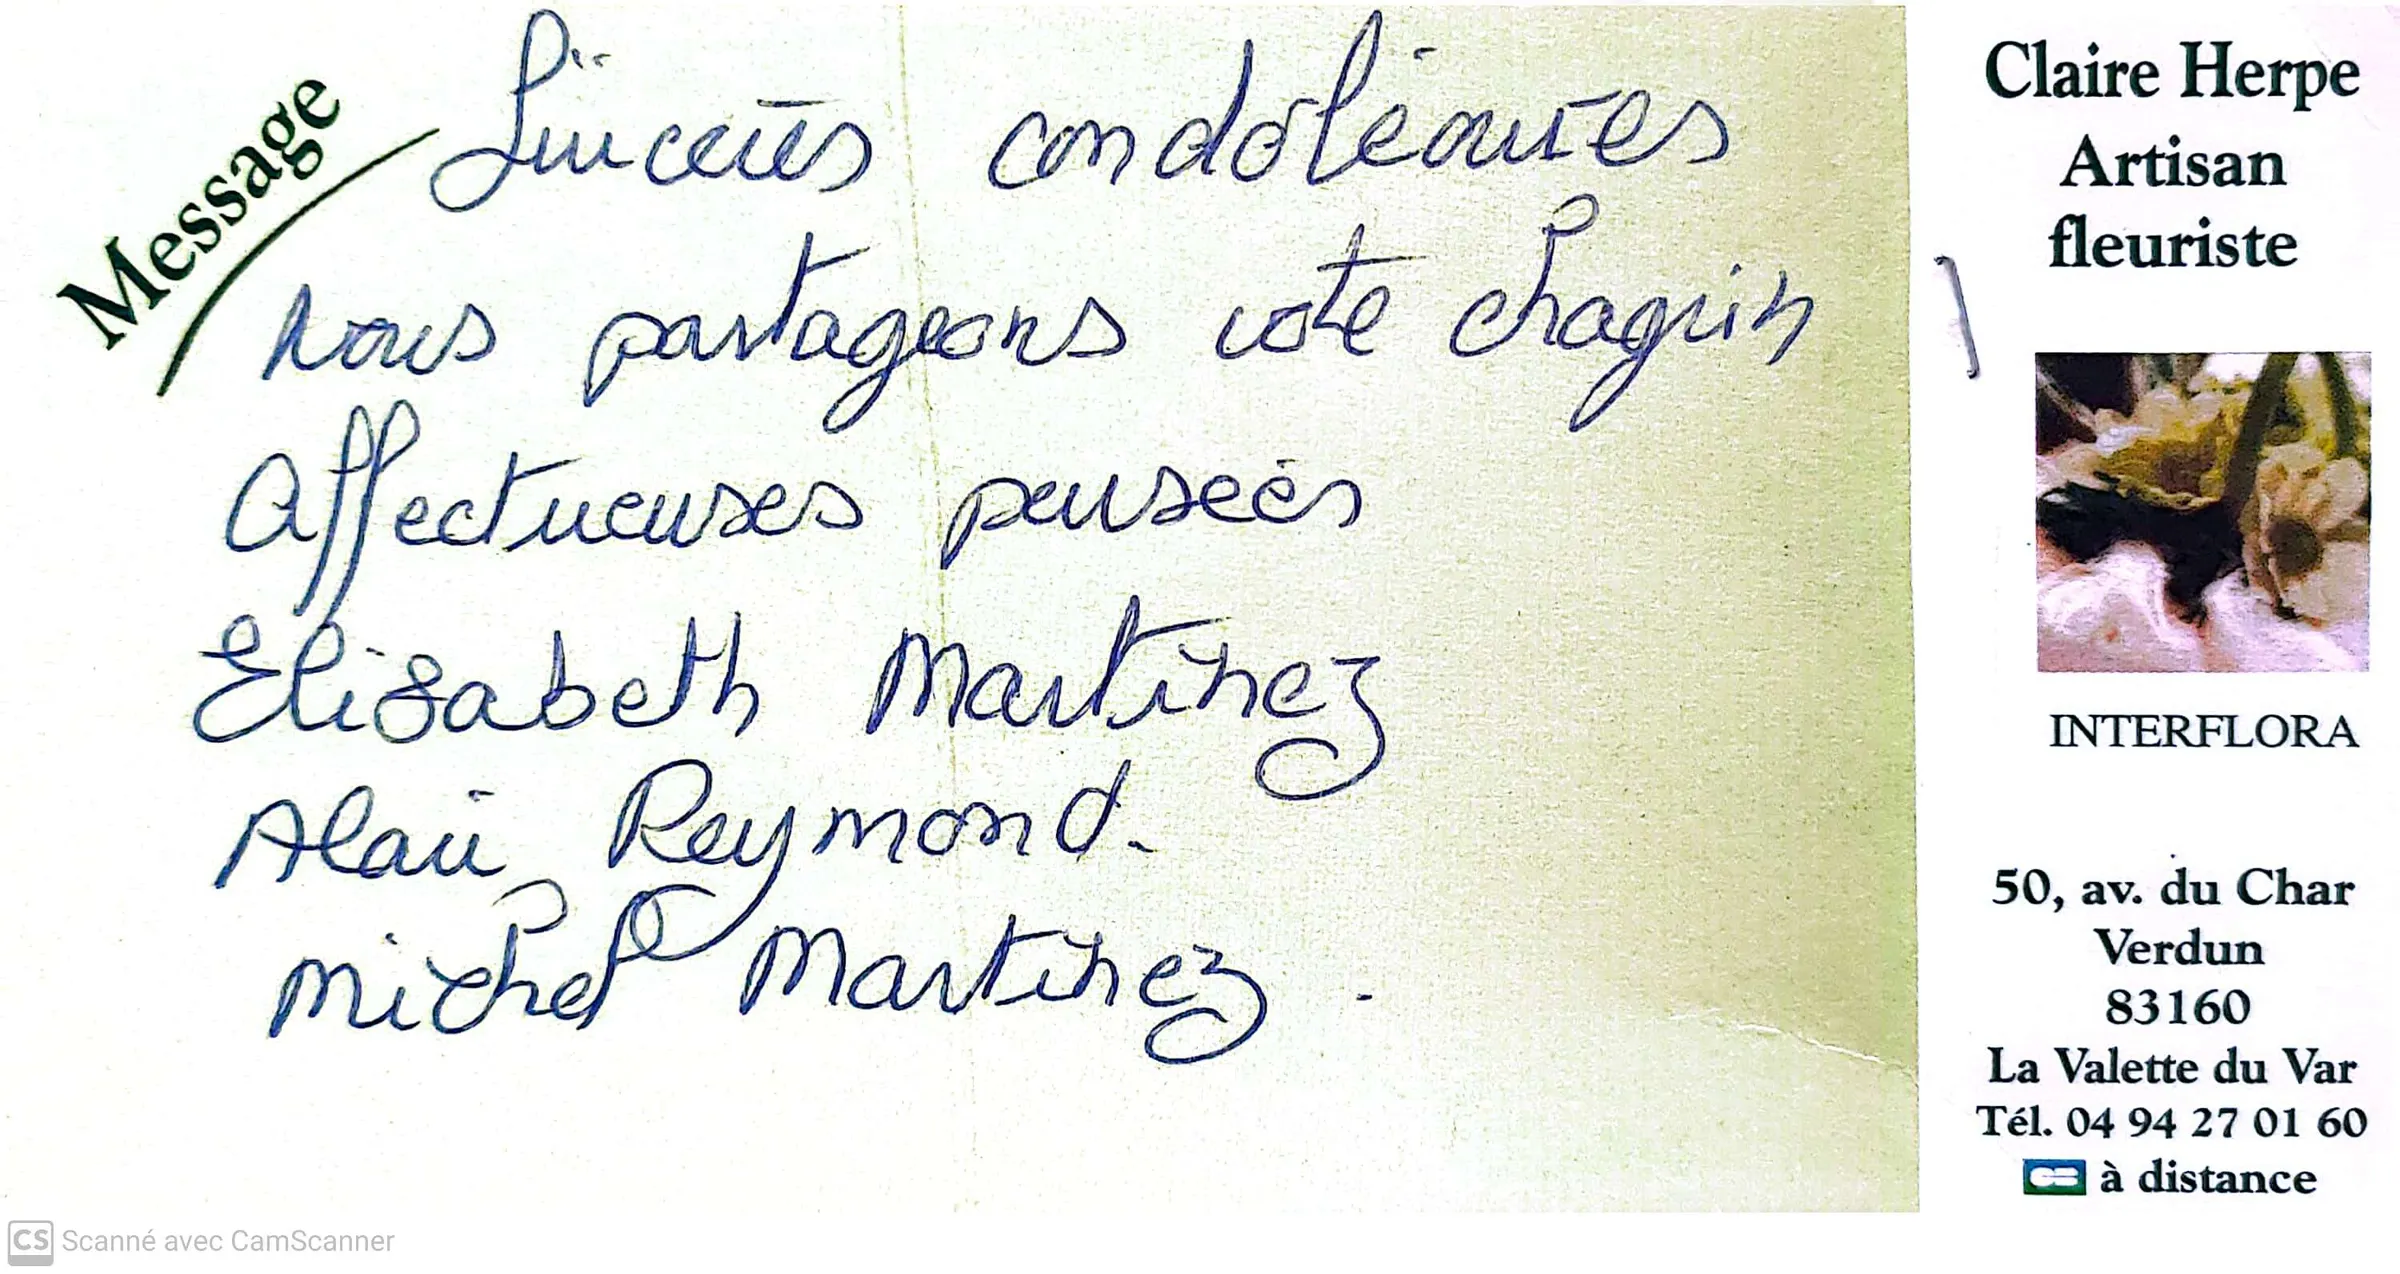 Message
Sincères condoléances
Nous partageons votre chagrin
Affectueuses pensées
Elisabeth Martinez
Alain Reymond.
Michel Martinez.
Claire Herpe
Artisan
fleuriste
INTERFLORA
50, av. du Char
Verdun
83160
La Valette du Var
Tél. 04 94 27 01 60
à distance
CS Scanné avec CamScanner